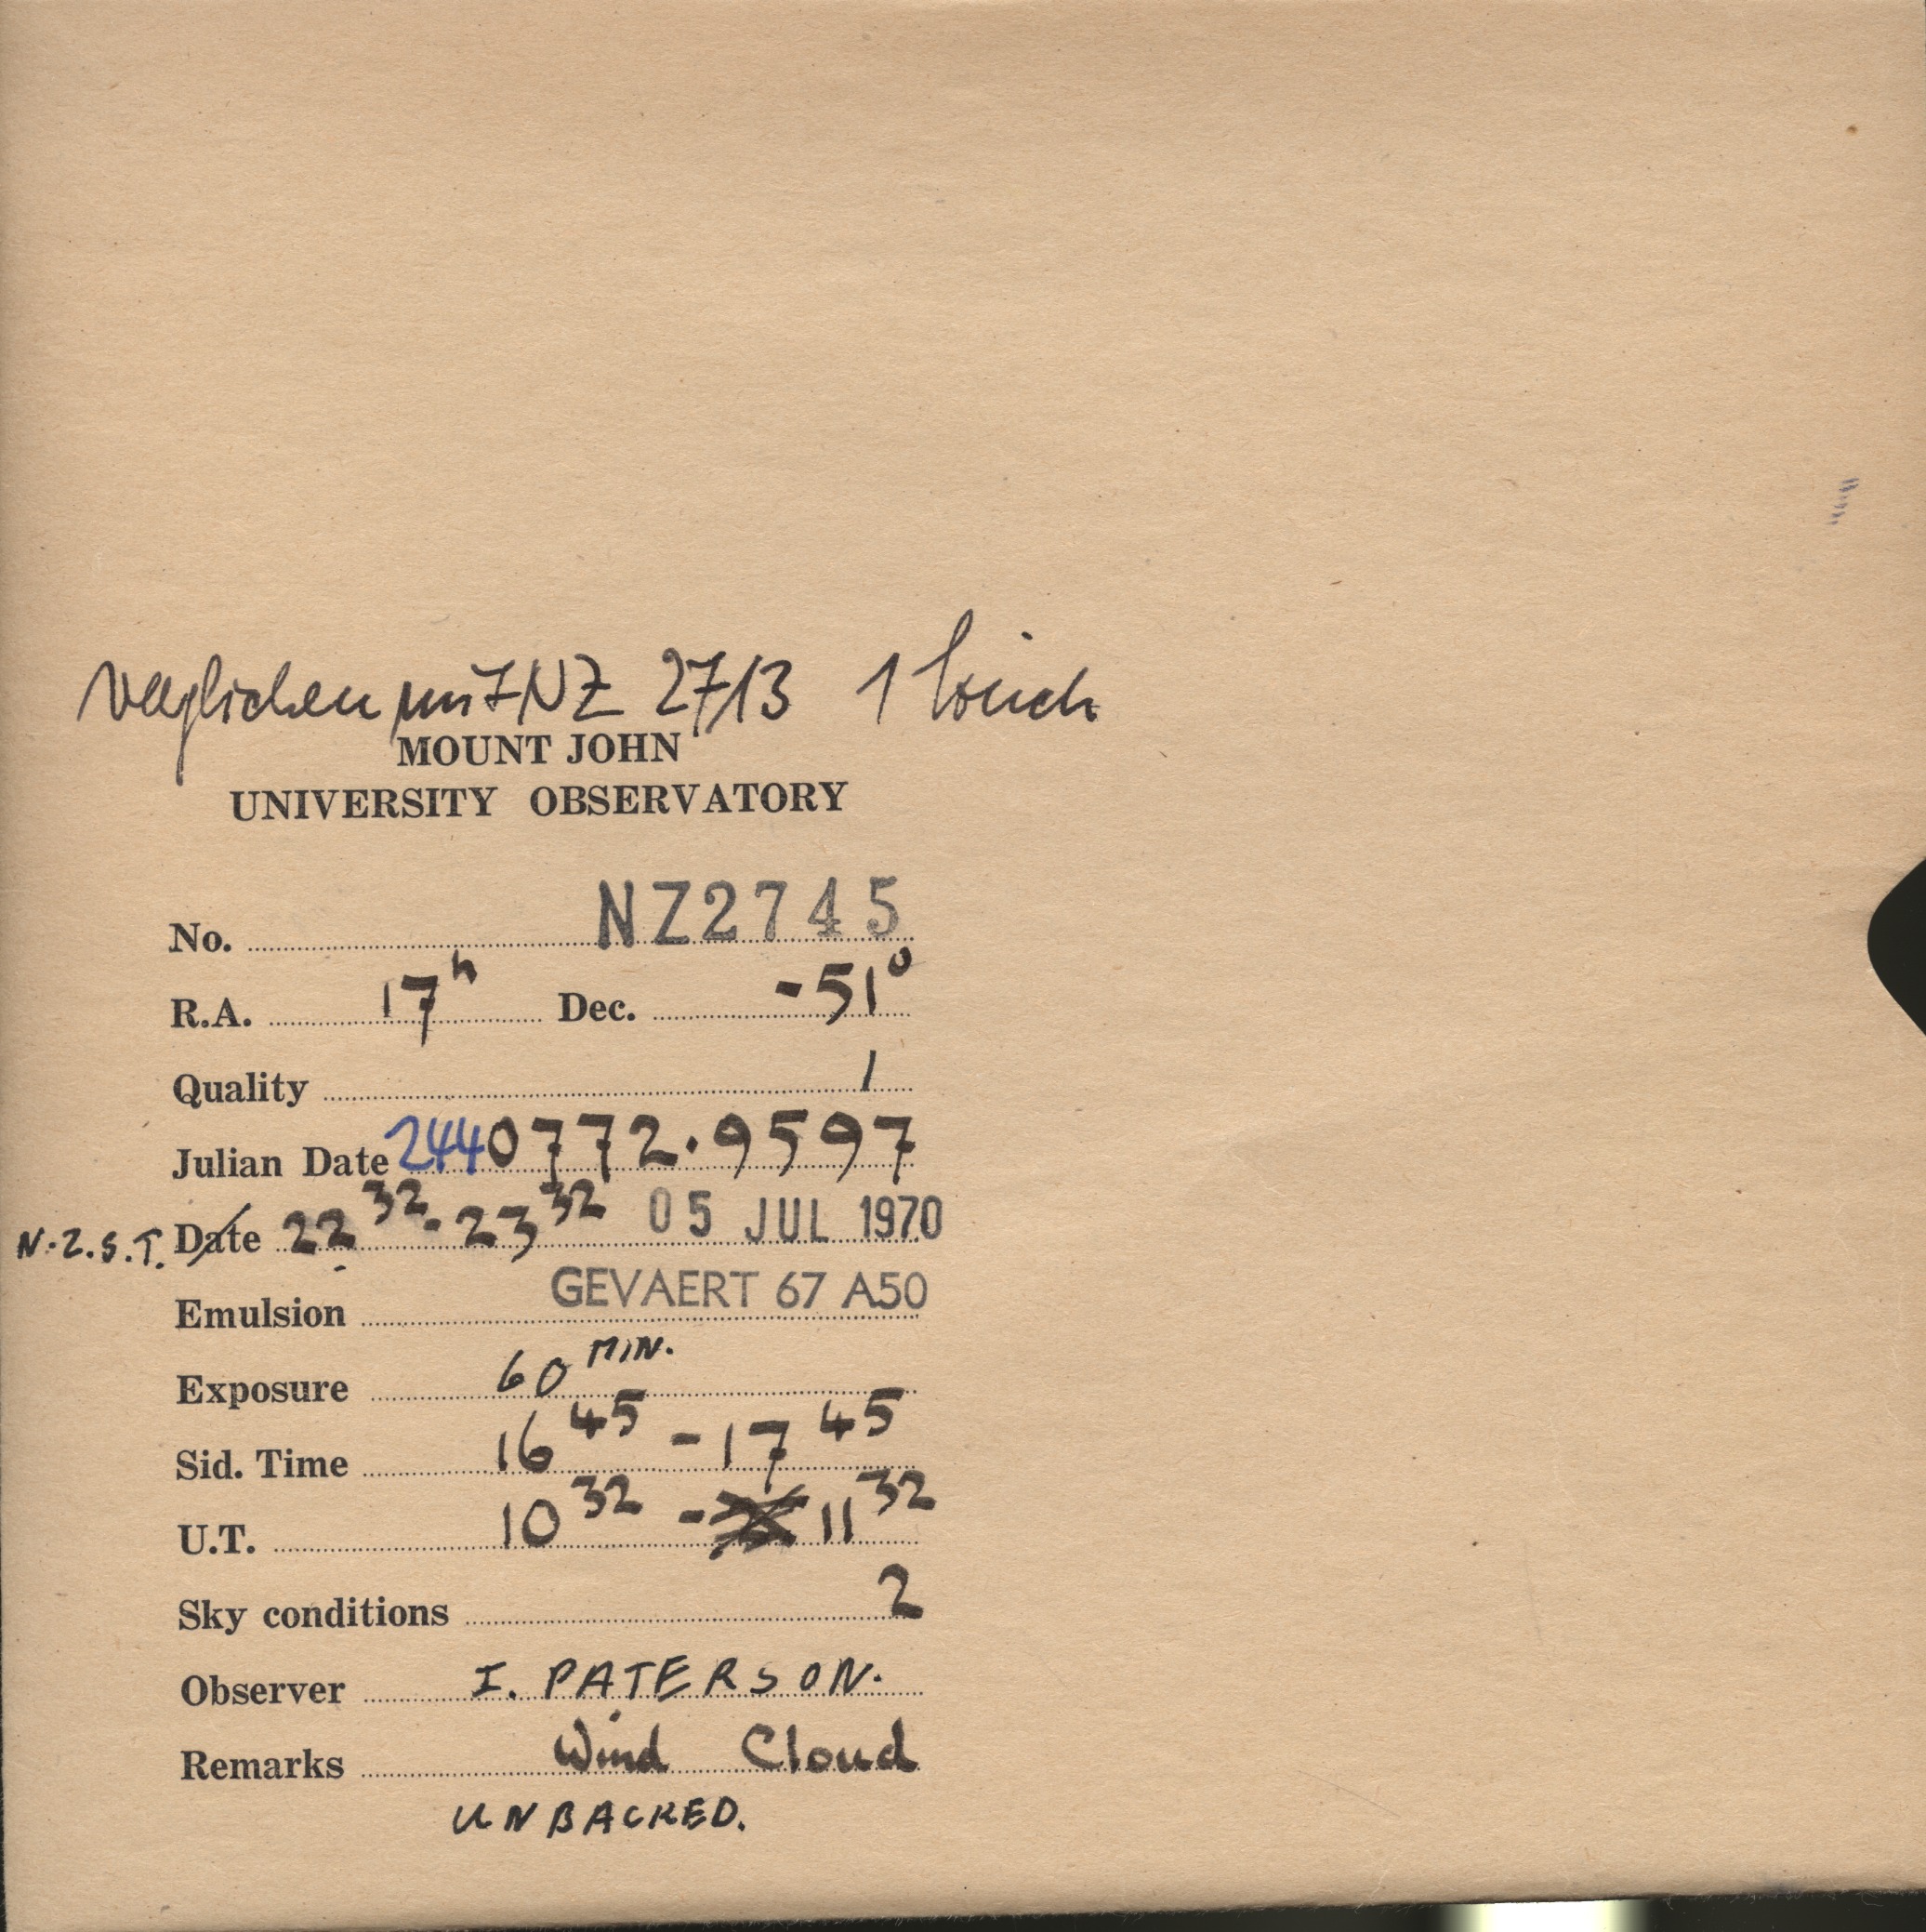 verglichen mit NZ 2713 1
MOUNT JOHN
UNIVERSITY OBSERVATORY
No. NZ2745
R.A. 17h Dec. -51°
Quality 1
Julian Date 2440772.9597
N.Z.S.T. Date 22 32 - 23 32 05 JUL 1970
Emulsion GEVAERT 67 A50
Exposure 60 MIN.
Sid. Time 16 45 - 17 45
U.T. 10 32 - 11 32
Sky conditions 2
Observer I. PATERSON.
Remarks Wind Cloud
UNBACKED.